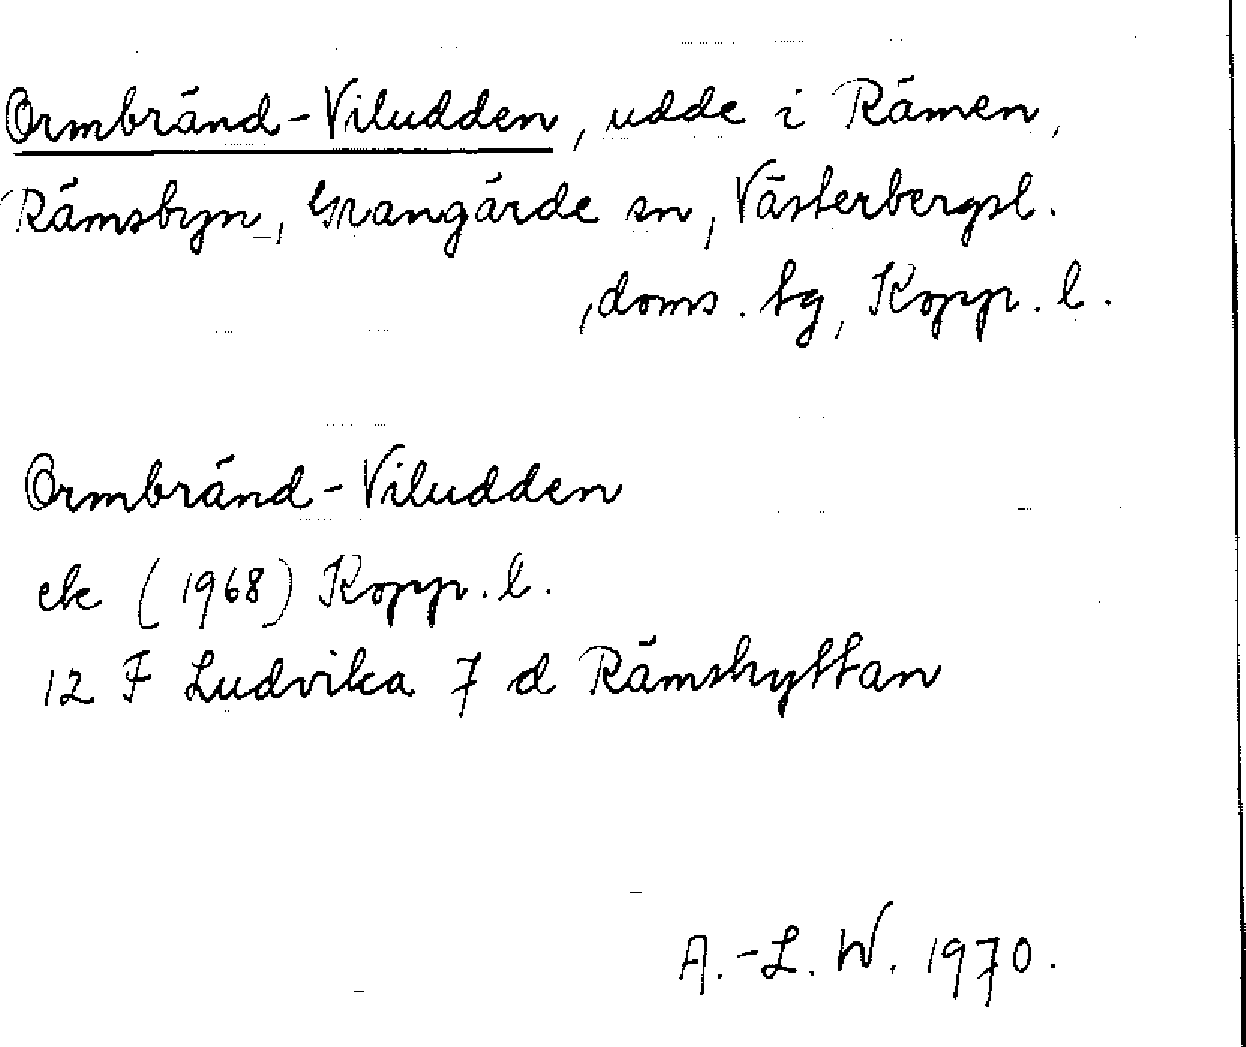 Ormbränd-Viludden, udde i Rämen,
Rämsbyn, Grangärde sn, Västerbergsl.
doms. tg, Kopp. l.
Ormbränd-Viludden
ek (1968) Kopp. l.
12 F Ludvika 7 d Rämshyttan
A.-L. W. 1970.